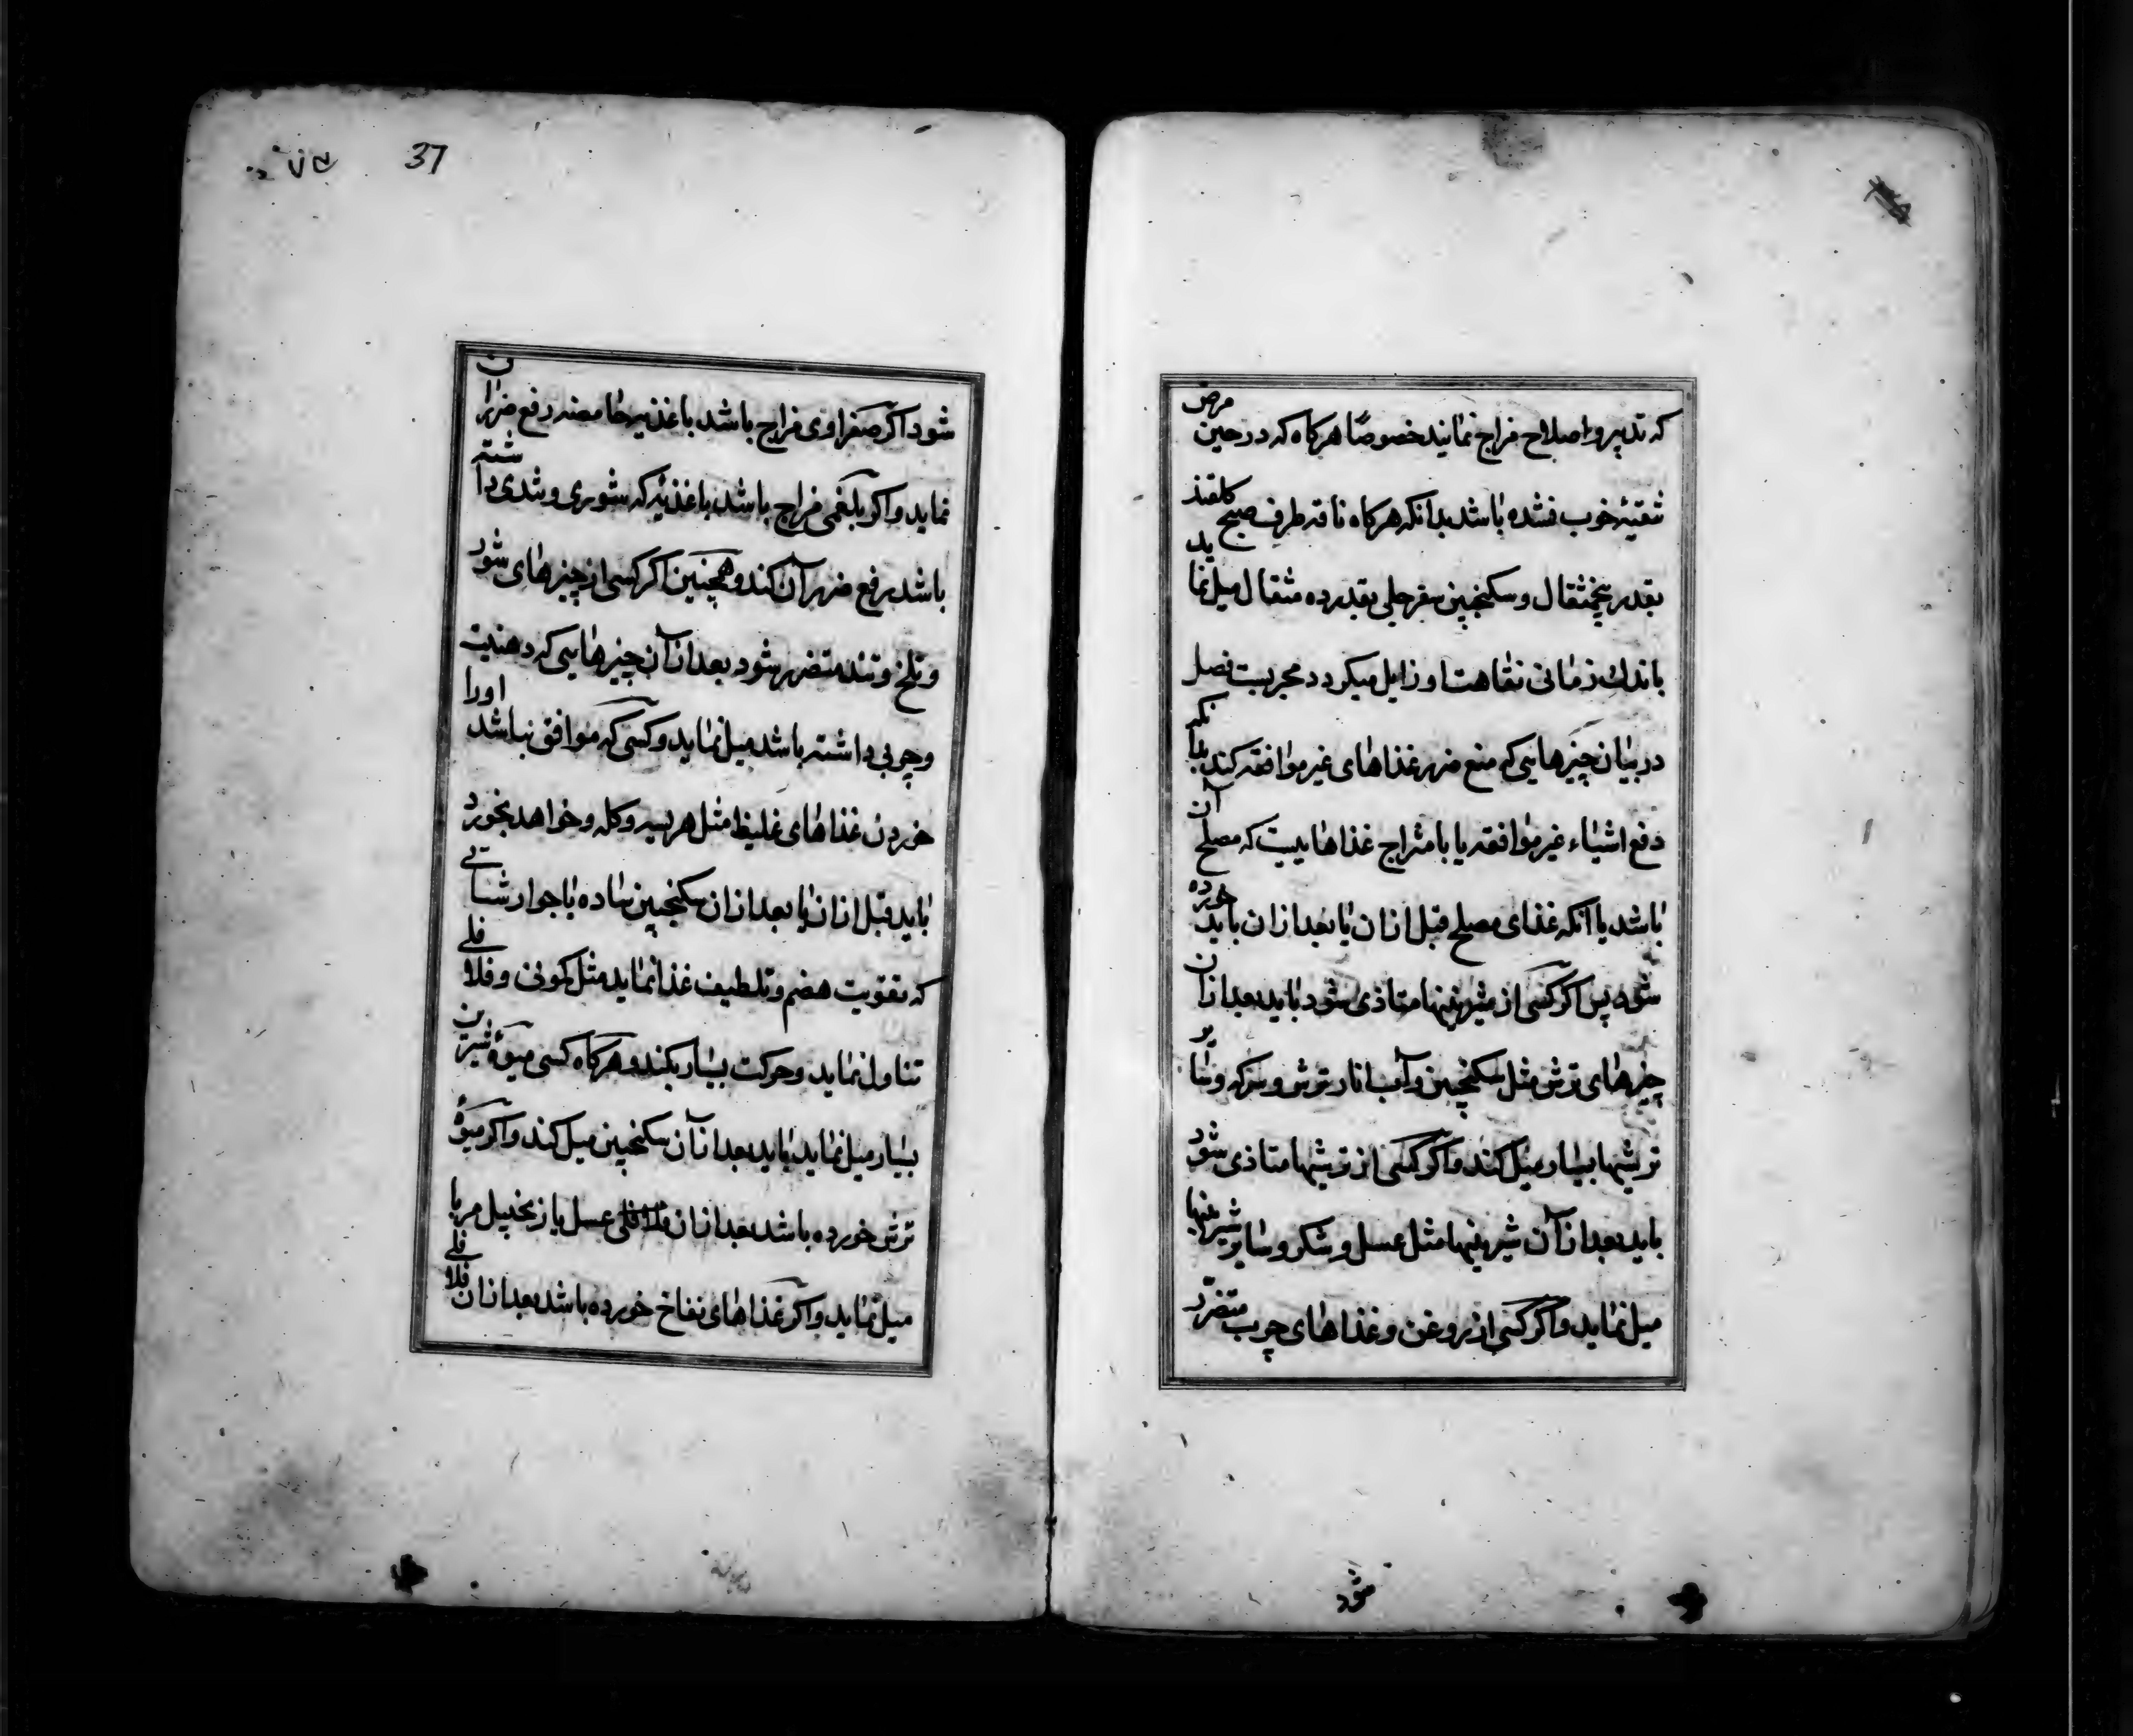 که تدبیر و اصلاح مزاج نمایند خصوصًا هرکاه که در حین مرض
تنقیهٔ خوب نشده باشد بدانکه هرکاه ناقه طرف صبح کلقند
بقدر پنجمثقال و سکنجبین سفرجلی بقدر ده مثقال میل نماید
باندك زمانی نقاهت او زایل میکردد مجربست فصل
در بیان چیزهایی که منع ضرر غذاهای غیر موافقه کند بدانکه
دفع اشیاء غیر موافقه یا بامتزاج غذاهاییست که مصلح آن
باشد یا آنکه غذای مصلح قبل ازان یا بعد ازان باید خورده
شود پس اکر کسی از شیرینیها متاذی شود باید بعد ازان
چیزهای ترش مثل سکنجبین و آب انار ترش و سرکه و سایر
ترشیها بسیار میل کند و اکر کسی از ترشیها متاذی شود
باید بعد ازآن شیرینیها مثل عسل و شکر و سایر شیرینیها
میل نماید و اکر کسی از روغن و غذاهای چرب متضرّر
شود
37
شود اکر صفراوی مزاج باشد باغذیه حامضه رفع ضرر آن
نماید و اکر بلغمی مزاج باشد باغذیه که شوری و تندی داشته
باشد رفع ضرر آن کند و همچنین اکر کسی از چیزهای شور
و تلخ و تند متضرر شود بعد ازآن چیزهایی که دهنیت
و چربی داشته باشد میل نماید و کسی که موافق نباشد اورا
خوردن غذاهای غلیظ مثل هریسه و کله و خواهد بخورد
باید قبل ازان یا بعد ازان سکنجبین ساده یا جوارشاتی
که تقویت هضم و تلطیف غذا نماید مثل کمونی و فلافلی
تناول نماید و حرکت بسیار بکند و هرکاه کسی میوهٔ شیرین
بسیار میل نماید باید بعد ازآن سکنجبین میل کند و اکر میوهٔ
ترش خورده باشد بعد ازان فلافلی عسل یا زنجبیل مربا
میل نماید و اکر غذاهای نفاخ خورده باشد بعد ازان فلافلی